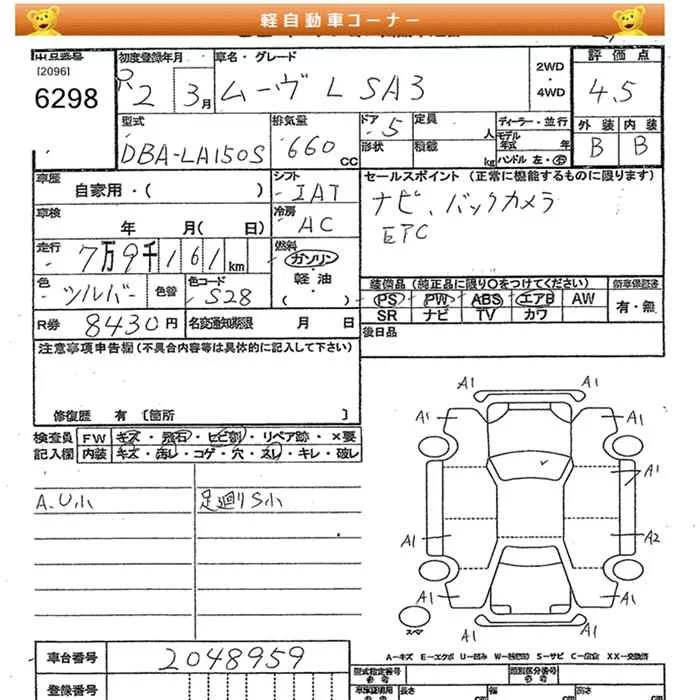 軽自動車コーナー
出品番号
[2096]
6298
初度登録年月
R2 3月
車名・グレード
ムーヴ L SA3
2WD
・
4WD
評価点
4.5
外装 内装
B B
型式
DBA-LA150S
排気量
660 cc
ドア 5
形状
定員 人
積載 kg
ディーラー・並行
モデル年式 年
ハンドル 左・右
車歴
自家用・( )
シフト
IAT
セールスポイント (正常に機能するものに限ります)
ナビ、バックカメラ
ETC
車検
年 月( 日)
冷房
AC
走行
7万9千161km
燃料
ガソリン・
軽油
( )
色
シルバー
色替
色コード
S28
装備品 (純正品に限り○をつけてください)
PS PW ABS エアB AW
SR ナビ TV カワ
新車保証書
有・無
R券 8430円
名変通知期限 月 日
後日品
注意事項申告欄(不具合内容等は具体的に記入して下さい)
修復歴 有 [箇所 ]
検査員記入欄
FW キズ・飛石・ヒビ割・リペア跡・×要
内装 キズ・汚レ・コゲ・穴・スレ・キレ・破レ
A.U小
足廻りS小
A1 A1
A1 A1
A1
A1 A2
A1 A1
スペア
A1 A1
A-キズ E-エクボ U-凹み W-補修跡 S-サビ C-腐食 XX-交換済
車台番号 2048959
登録番号
型式指定番号
参考
類別区分番号
参考
長さ 幅 高さ